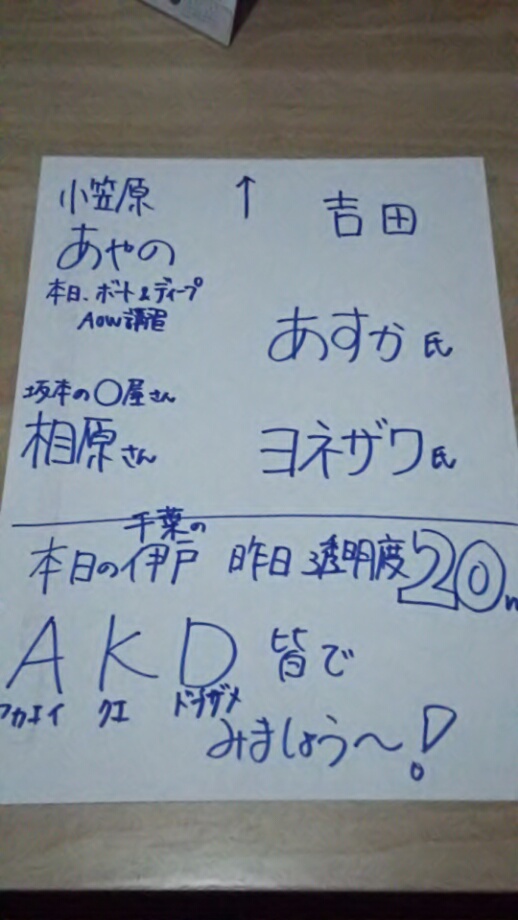 小笠原
あやの
本日、ボート&ディープ
AOW講習
↑
吉田
あすか氏
坂本の〇屋さん
相原さん
ヨネザワ氏
千葉の
本日の伊戸 昨日 透明度20m
AKD 皆で
アカエイ クエ ドチザメ
みましょう〜!